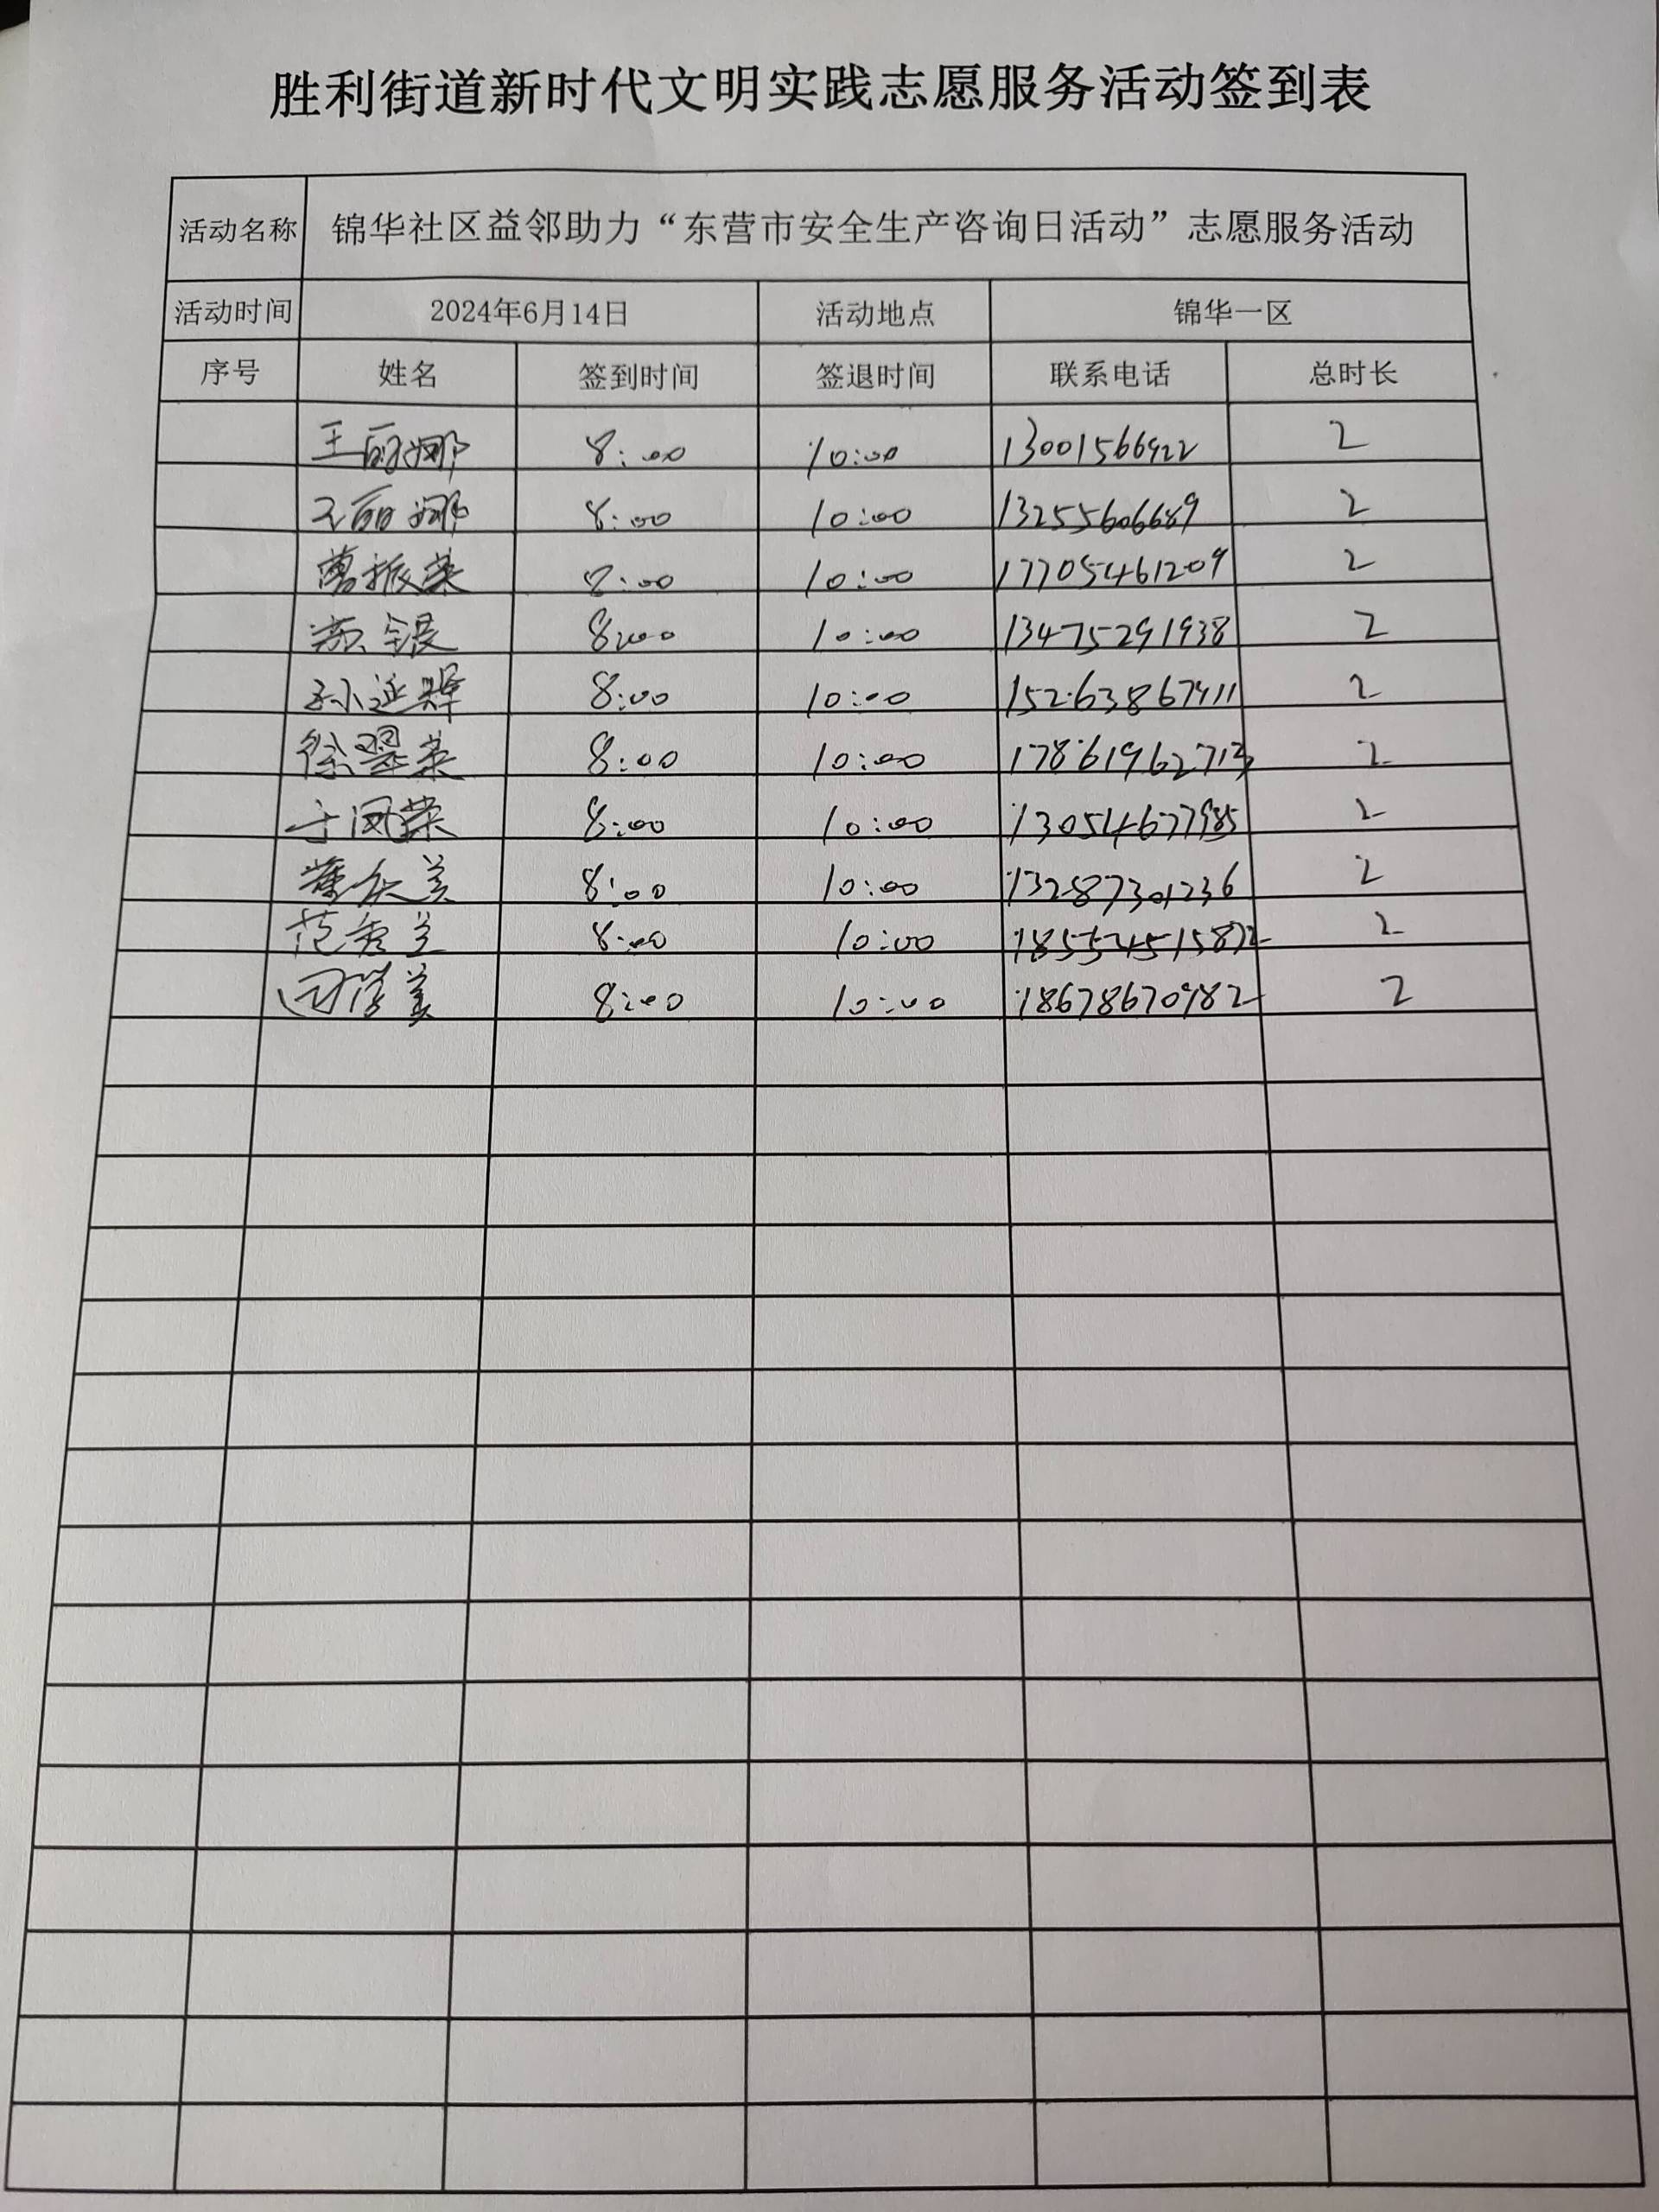 胜利街道新时代文明实践志愿服务活动签到表
活动名称 锦华社区益邻助力“东营市安全生产咨询日活动”志愿服务活动
活动时间 2024年6月14日 活动地点 锦华一区
序号 姓名 签到时间 签退时间 联系电话 总时长
王丽娜 8:00 10:00 13001566922 2
王丽娜 8:00 10:00 13255606689 2
曹振荣 8:00 10:00 17705461209 2
8:00 10:00 13475291938 2
孙延辉 8:00 10:00 15263867411 2
徐翠英 8:00 10:00 17861962713 2
于凤荣 8:00 10:00 13054677985 2
8:00 10:00 13287301236 2
范秀兰 8:00 10:00 2
田学美 8:00 10:00 18678670982 2